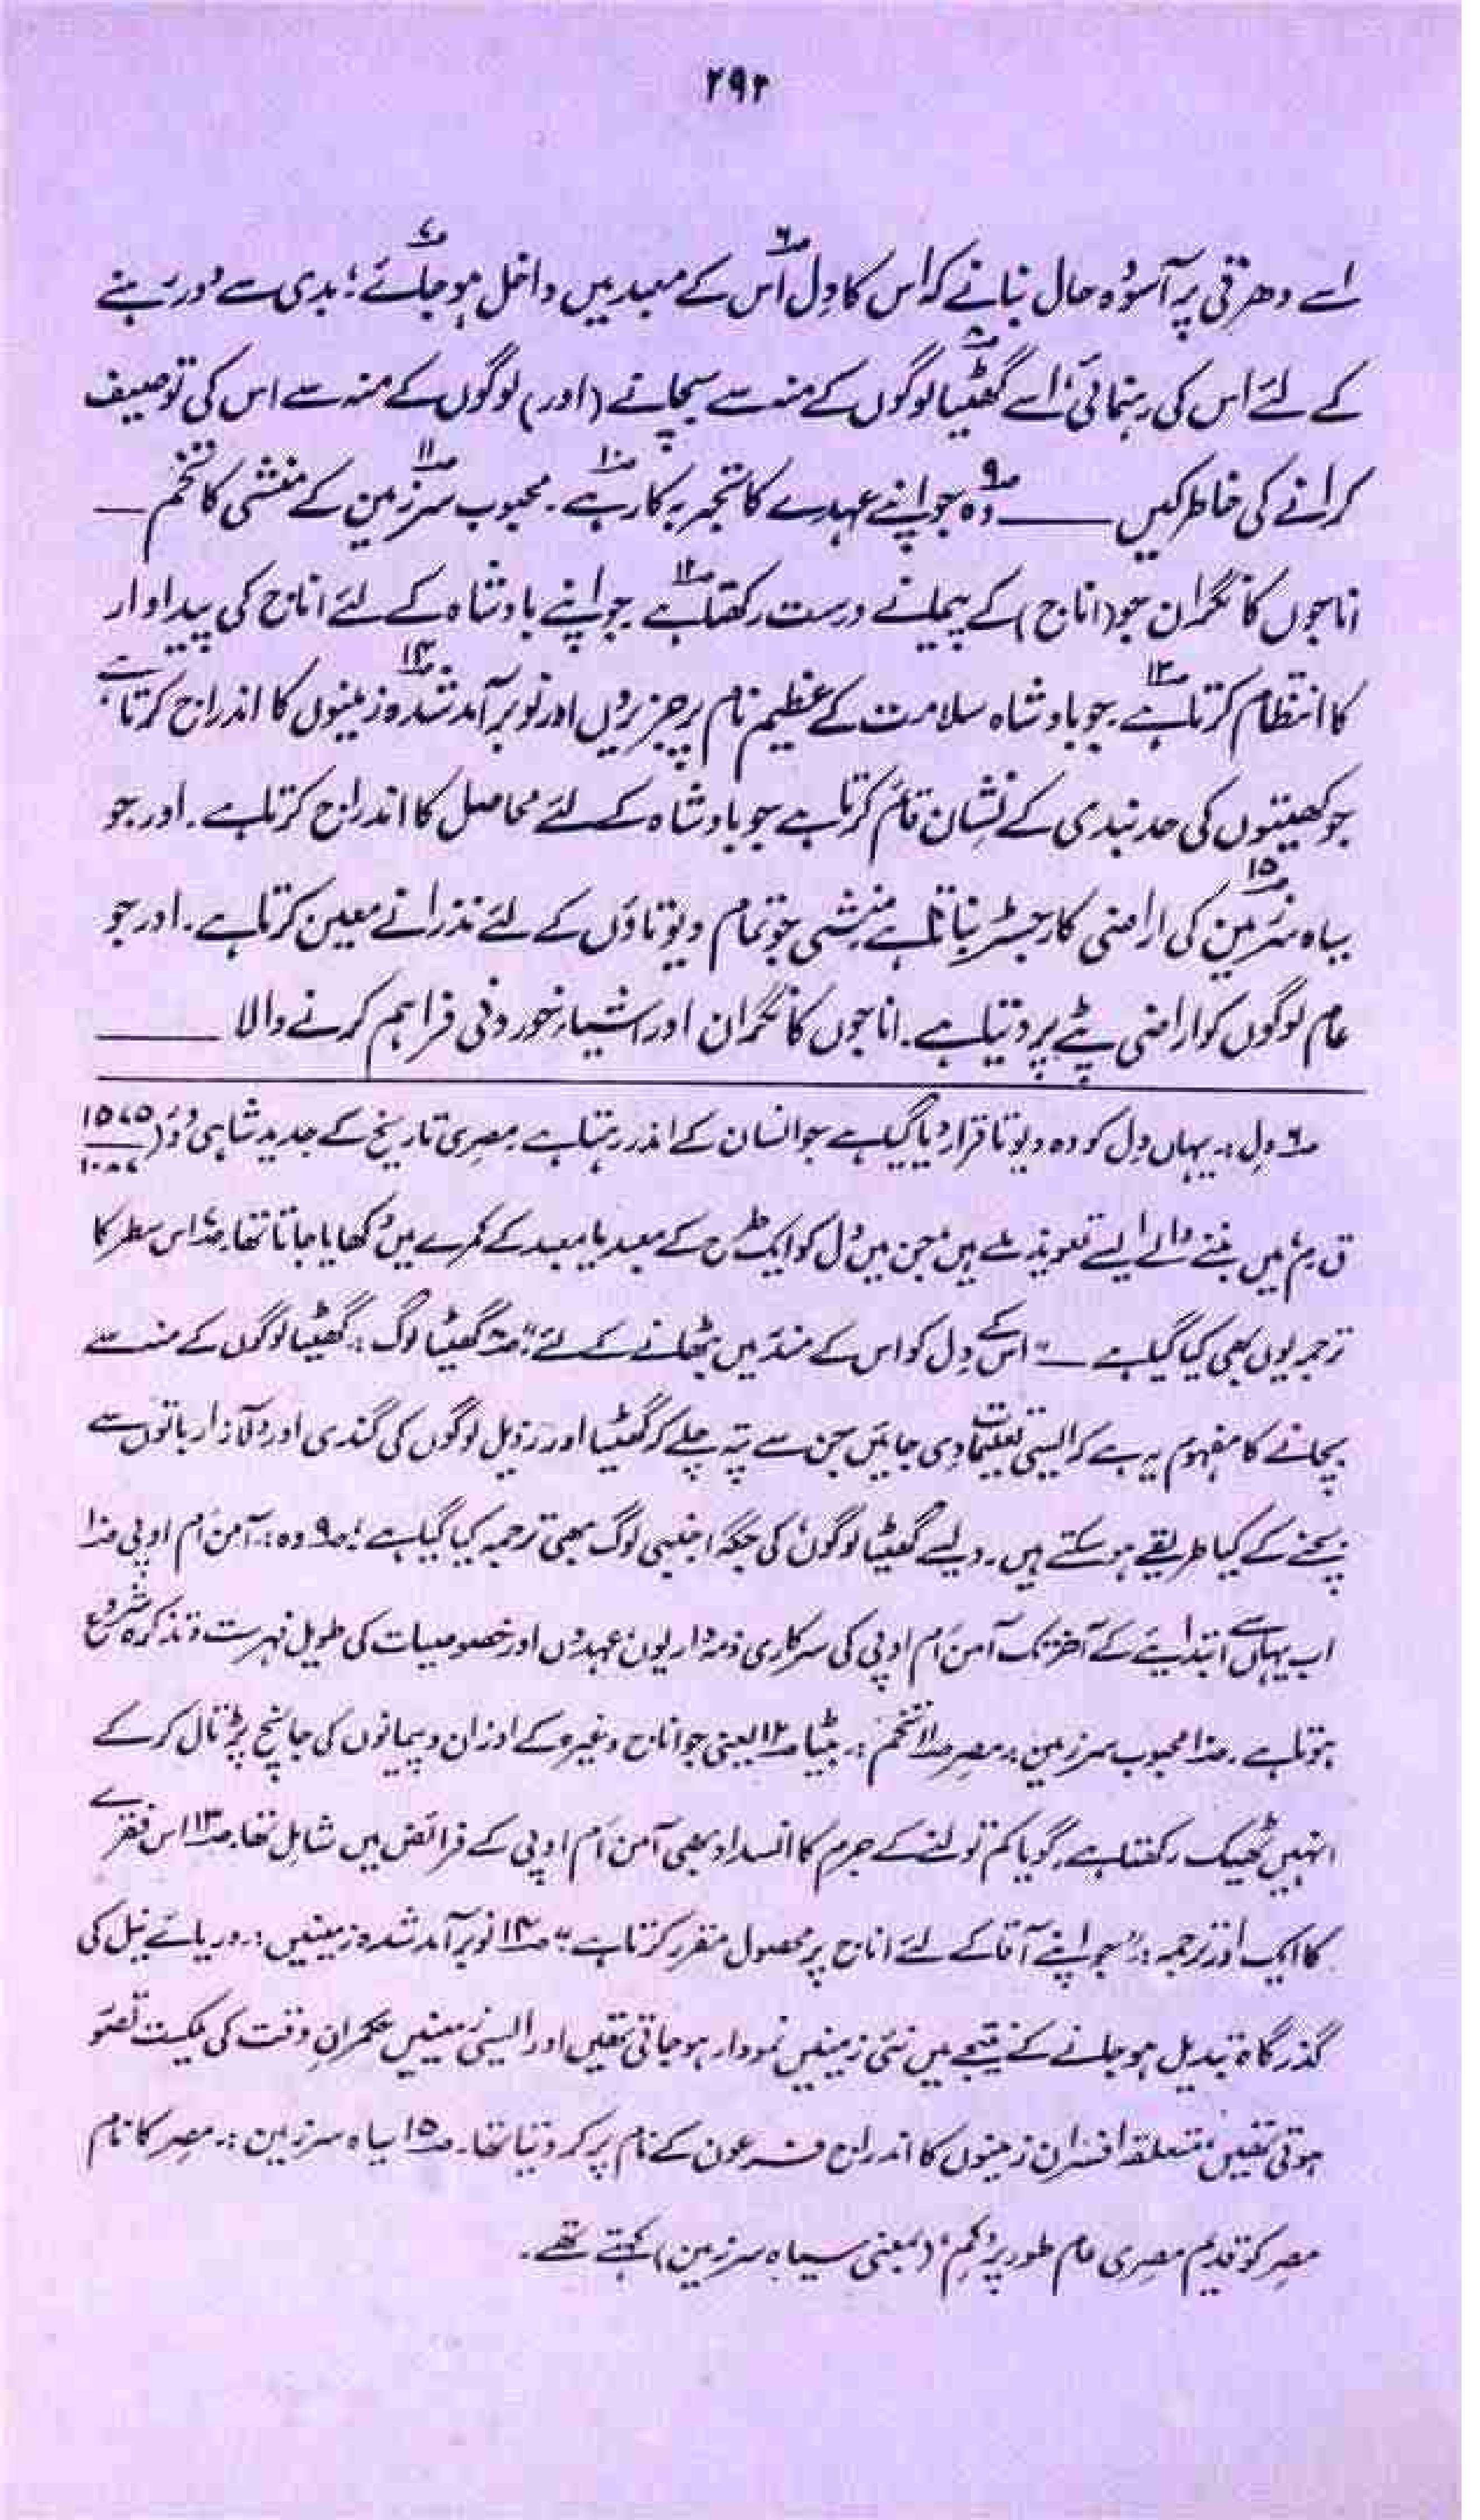 ۲۹۲
اسے دھرتی پر آسودہ حال بنانے کہ اس کا دِل۶ اُس کے معبد میں داخل ہو جائے۷؛ بدی سے دور رہنے
کے لئے اس کی رہنمائی؛ اسے گھٹیا۸ لوگوں کے منہ سے بچانے (اور) لوگوں کے منہ سے اس کی توصیف
کرانے کی خاطر کیں ــــــ وہ۹ جو اپنے عہدے کا تجربہ کار ہے۔ محبوب۱۰ سرزمین کے منشی کا تخم۱۱ ــــ
اناجوں کا نگران جو (اناج) کے پیمانے درست رکھتا ہے۱۲ جو اپنے بادشاہ کے لئے اناج کی پیداوار
کا انتظام کرتا ہے۱۳۔ جو بادشاہ سلامت کے عظیم نام پر جزیروں اور نو برآمد شدہ۱۴ زمینوں کا اندراج کرتا ہے
جو کھیتوں کی حد بندی کے نشان قائم کرتا ہے جو بادشاہ کے لئے محاصل کا اندراج کرتا ہے۔ اور جو
سیاہ سرزمین۱۵ کی اراضی کا رجسٹر بناتا ہے منشی جو تمام دیوتاؤں کے لئے نذرانے معین کرتا ہے۔ اور جو
عام لوگوں کو اراضی پٹے پر دیتا ہے۔ اناجوں کا نگران اور اشیاءِ خوردنی فراہم کرنے والا ــــــ
۶ دِل :۔ یہاں دِل کو وہ دیوتا قرار دیا گیا ہے جو انسان کے اندر رہتا ہے۔ مصری تاریخ کے جدید شاہی دَور (۱۵۷۵ / ۱۰۸۷
ق م) میں بننے والے ایسے تعویذ ملے ہیں جن میں دل کو ایک طرح کے معبد یا معبد کے کمرے میں دکھایا جاتا تھا۔ ۷ اس سطر کا
ترجمہ یوں بھی کیا گیا ہے ــ "اس کے دِل کو اس کے مندر میں بٹھانے کے لئے" ۸ گھٹیا لوگ :۔ گھٹیا لوگوں کے منہ سے
بچانے کا مفہوم یہ ہے کہ ایسی تعلیمات دی جائیں جن سے پتہ چلے کہ گھٹیا اور رذیل لوگوں کی گندی اور دلآزار باتوں سے
بچنے کے کیا طریقے ہو سکتے ہیں۔ ویسے گھٹیا لوگوں کی جگہ اجنبی لوگ بھی ترجمہ کیا گیا ہے؛ ۹ وہ :۔ آمن اَم اوپی
اب یہاں سے ابتدائیے کے آخر تک آمن اَم اوپی کی سرکاری ذمہ داریوں، عہدوں اور خصوصیات کی طویل فہرست و تذکرہ شروع
ہوتا ہے۔ ۱۰ محبوب سرزمین :۔ مصر ۱۱ تخم :۔ بیٹا ۱۲ یعنی جو اناج وغیرہ کے اوزان و پیمانوں کی جانچ پڑتال کر کے
انہیں ٹھیک رکھتا ہے۔ گویا کم تولنے کے جرم کا انسداد بھی آمن اَم اوپی کے فرائض میں شامل تھا۔ ۱۳ اس فقرے
کا ایک اور ترجمہ :۔ "جو اپنے آقا کے لئے اناج پر محصول مقرر کرتا ہے" ۱۴ نو برآمد شدہ زمینیں :۔ دریائے نیل کی
گذرگاہ تبدیل ہو جانے کے نتیجے میں نئی زمینیں نمودار ہو جاتی تھیں اور ایسی زمینیں حکمرانِ وقت کی ملکیت تصوّر
ہوتی تھیں متعلقہ افسران زمینوں کا اندراج فرعون کے نام پر کر دیتا تھا۔ ۱۵ سیاہ سرزمین :۔ مصر کا نام
مصر کو قدیم مصری عام طور پر "کِم" (بمعنی سیاہ سرزمین) کہتے تھے۔